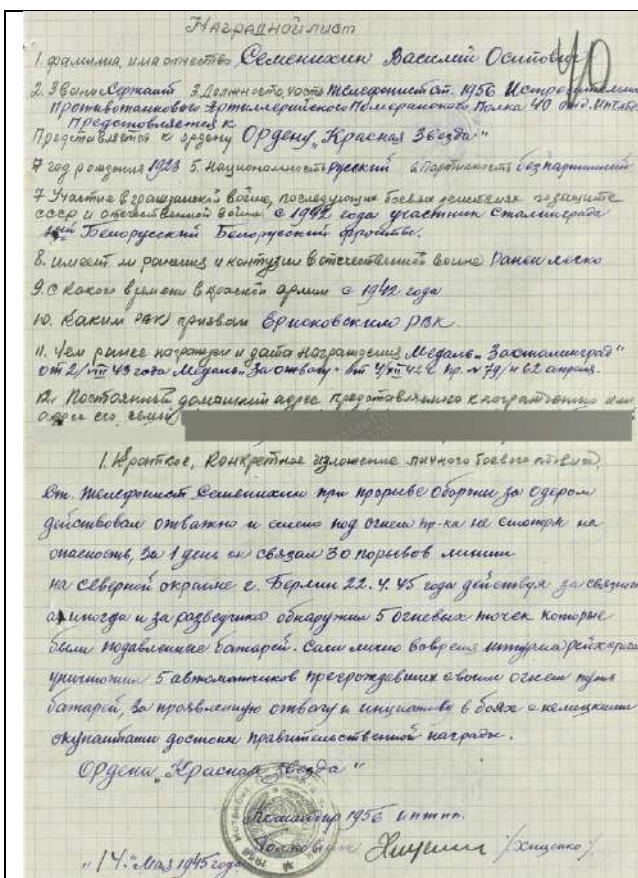 Наградной лист
40
1. фамилия, имя отчество Семенихин Василий Осипович
2. Звание Сержант 3. Должность, часть телефонист ст. 1956 Истребительно
Противотанкового Артиллерийского Померанского Полка 40 отд.
Представляется к
Представляется к ордену Ордену „Красная Звезда“
4 год рождения 1923 5. Национальность Русский 6 Партийность беспартийный
7 Участие в гражданской войне, последующих боевых действиях по защите
СССР и отечественной войне с 1942 года участник Сталинграда
Белорусский Белорусский фронты.
8. имеет ли ранения и контузии в отечественной войне Ранен легко
9. с какого времени в красной армии с 1942 года
10. Каким РВК призван РВК.
11. Чем ранее награжден и дата награждения Медаль „За сталинград“
от 2/VIII 43 года Медаль „За отвагу“ от 4/XII 42 г. пр. №79/н 62 армия.
12. Постоянный домашний адрес представляемого к награждению или
адрес его семьи
1. Краткое, конкретное изложение личного боевого подвига
Ст. телефонист Семенихин при прорыве обороны за одером
действовал отважно и смело под огнем пр-ка не смотря на
опасность, за 1 день он связал 30 порывов линии
на северной окраине г. Берлин 22.4.45 года действуя за связного
а иногда и за разведчика обнаружил 5 огневых точек которые
были подавленные батареей. Сам лично во время штурма рейхстага
уничтожил 5 автоматчиков преграждавших своим огнем путь
батареи, за проявленную отвагу и инициативу в боях с немецкими
окупантами достоин правительственной награды.
Ордена „Красная Звезда“
Командир 1956 иптап.
Полковник /Хищенко/
„14“ Мая 1945 года